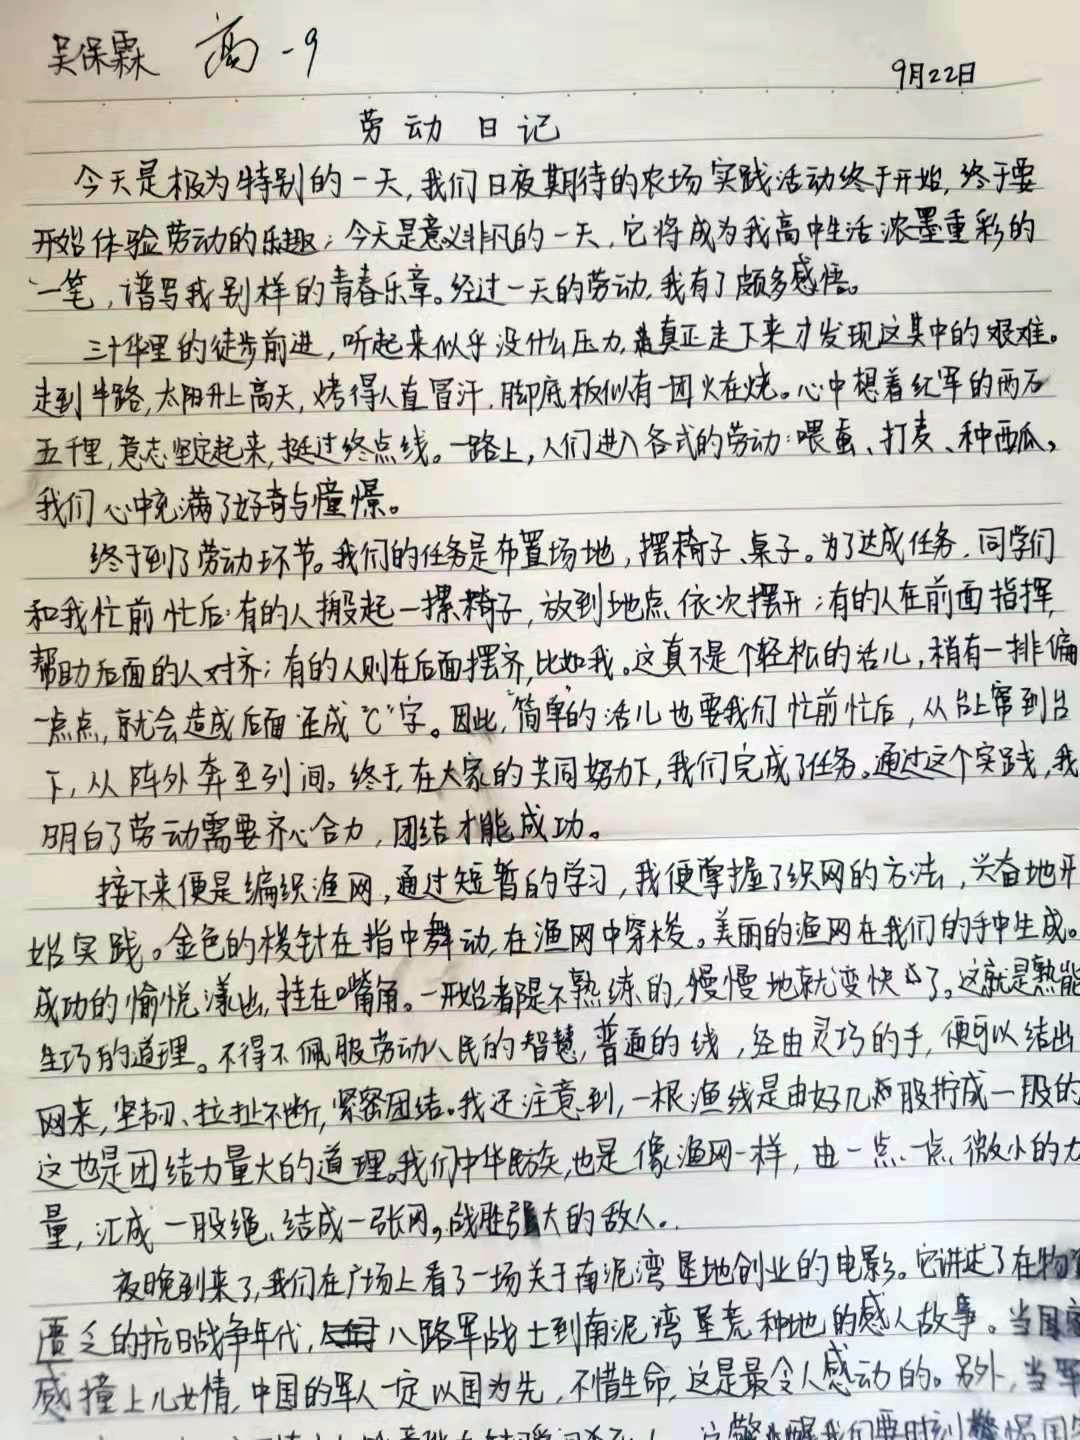 吴保霖 高一9
9月22日
劳动日记
今天是极为特别的一天,我们日夜期待的农场实践活动终于开始,终于要
开始体验劳动的乐趣;今天是意义非凡的一天,它将成为我高中生活浓墨重彩的
一笔,谱写我别样的青春乐章。经过一天的劳动,我有了颇多感悟。
三十华里的徒步前进,听起来似乎没什么压力,真正走下来才发现这其中的艰难。
走到半路,太阳升上高天,烤得人直冒汗,脚底板似有一团火在烧。心中想着红军的两万
五千里,意志坚定起来,挺过终点线。一路上,人们进入各式的劳动:喂蚕、打麦、种西瓜,
我们心中充满了好奇与憧憬。
终于到了劳动环节。我们的任务是布置场地,摆椅子、桌子。为了达成任务,同学们
和我忙前忙后:有的人搬起一摞椅子,放到地点依次摆开;有的人在前面指挥,
帮助后面的人对齐;有的人则在后面摆齐,比如我。这真不是个轻松的活儿,稍有一排偏
一点点,就会造成后面歪成“C”字。因此,“简单”的活儿也要我们忙前忙后,从台上窜到台
下,从阵外奔至列间。终于,在大家的共同努力下,我们完成了任务。通过这个实践,我
明白了劳动需要齐心合力,团结才能成功。
接下来便是编织渔网,通过短暂的学习,我便掌握了织网的方法,兴奋地开
始实践。金色的梭针在指中舞动,在渔网中穿梭。美丽的渔网在我们的手中生成。
成功的愉悦漾出,挂在嘴角。一开始都是不熟练的,慢慢地就变快了。这就是熟能
生巧的道理。不得不佩服劳动人民的智慧,普通的线,经由灵巧的手,便可以结出
网来,坚韧、拉扯不断,紧密团结。我还注意到,一根渔线是由好几股拧成一股的
这也是团结力量大的道理。我们中华民族,也是像渔网一样,由一点一点微小的力
量,汇成一股绳、结成一张网,战胜强大的敌人。
夜晚到来了,我们在广场上看了一场关于南泥湾垦地创业的电影。它讲述了在物资
匮乏的抗日战争年代,八路军战士到南泥湾垦荒种地的感人故事。当国家
感撞上儿女情,中国的军人一定以国为先,不惜生命,这是最令人感动的。另外,当军
我们要时刻警惕